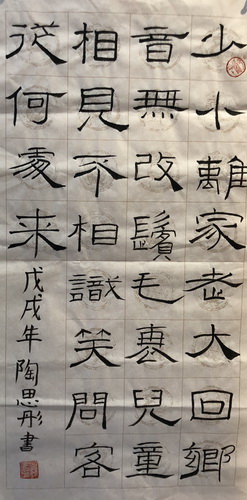 少小離家老大回鄉
音無改鬢毛衰兒童
相見不相識笑問客
從何處来
戊戌年陶思彤書